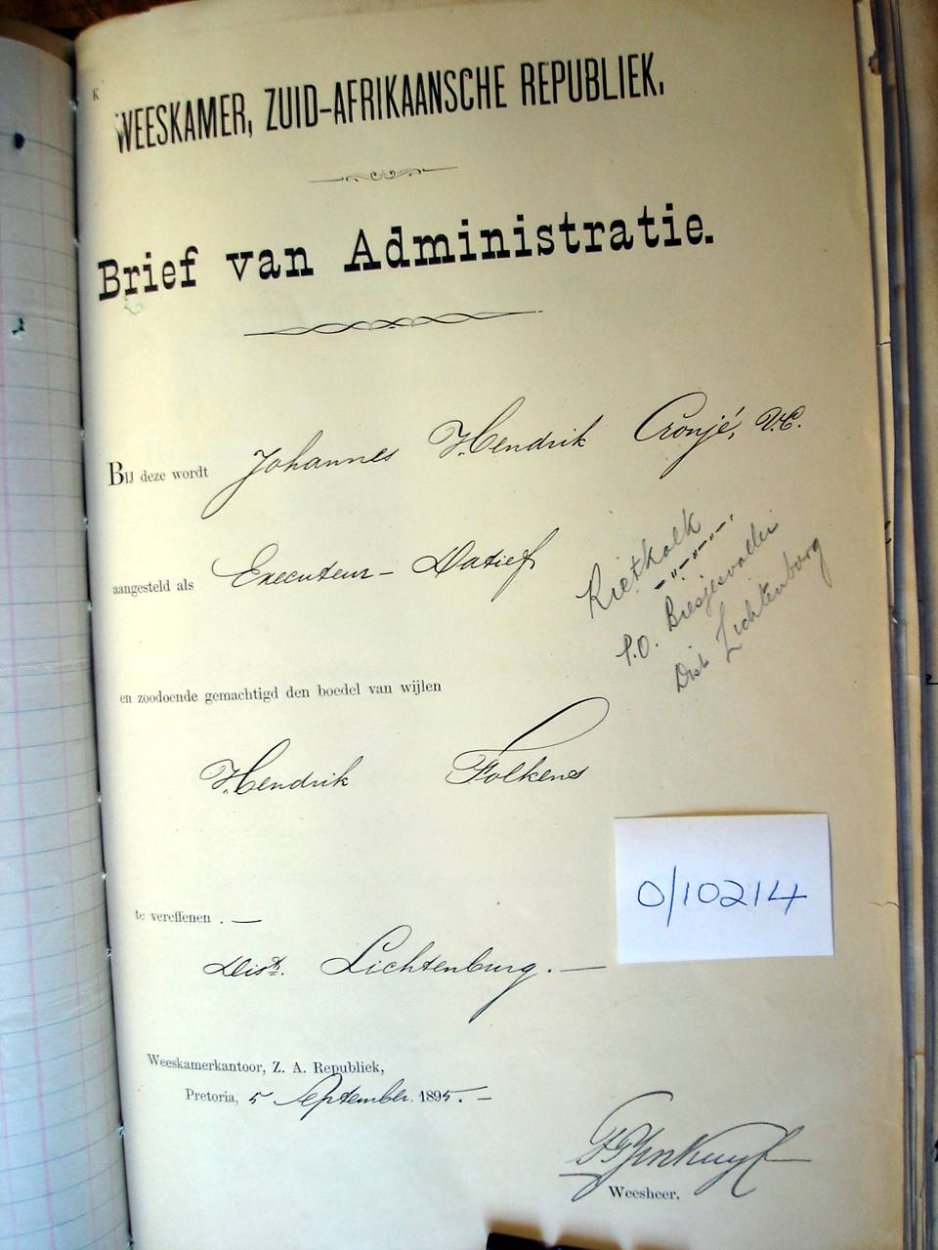 WEESKAMER, ZUID-AFRIKAANSCHE REPUBLIEK.
Brief van Administratie.
Bij deze wordt Johannes Hendrik Cronjé, V.C.
aangesteld als Executeur- Datief
Rietkolk
P.O. Biesjesvallei
Dist Lichtenburg
en zoodoende gemachtigd den boedel van wijlen
Hendrik Folkens
0/10214
te vereffenen . —
Dist. Lichtenburg. —
Weeskamerkantoor, Z. A. Republiek,
Pretoria, 5 September 1895. —
Weesheer.